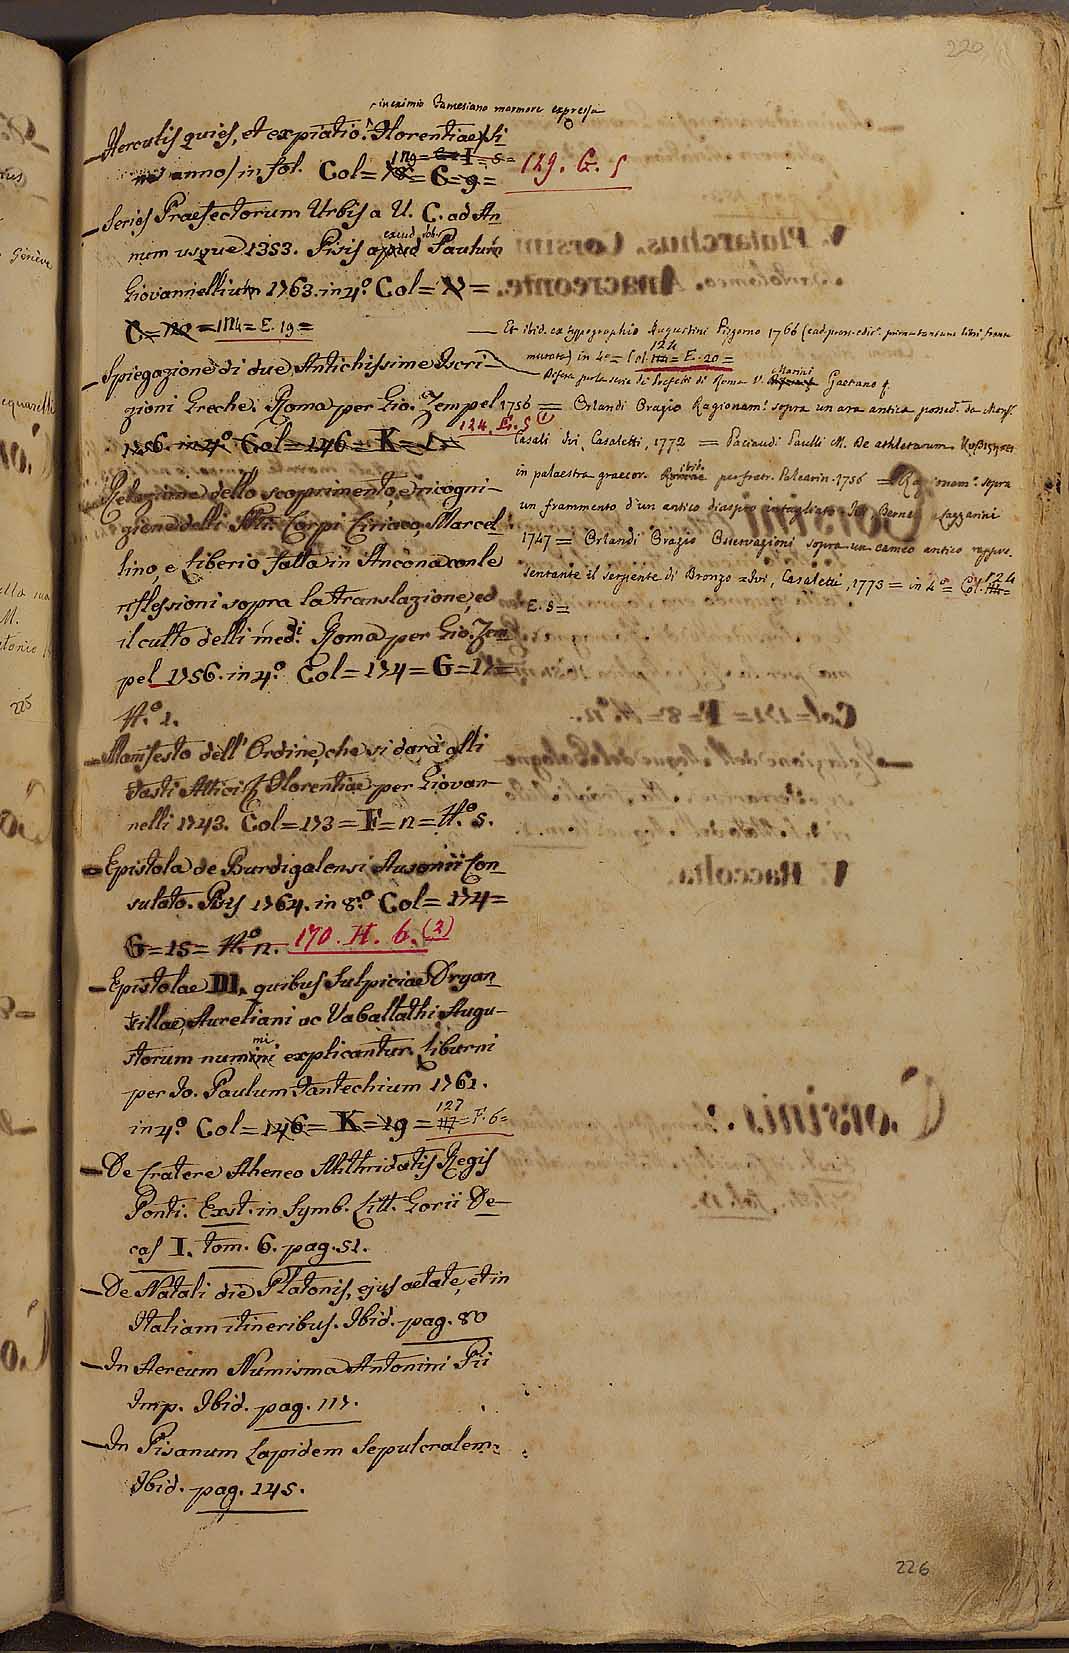 220
in eximio Farnesiano marmore expressa
— Herculis quies, et expiatio. Florentiae (si
ne anno) in fol. Col = 129 = G = 9 = 129. G. 5
— Series Praefectorum Urbis a U. C. ad An
num usque 1353. Pisis apud Paulum
Giovannellium 1763. in 4.º Col = X =
C = 20 = 124 = E. 19 =
— Et ibid. ex typographio Augustini Pizzorno 1766
in 4º = Col. 124 = E. 20 =
Difesa per la serie de' Prefetti di Roma V. Marini Gaetano
— Spiegazione di due Antichissime Iscri-
zioni Greche. Roma per Gio. Zempel 1756
1756. in 4.º Col = 146 = K = 124. E. 5 (1)
= Orlandi Orazio Ragionam.º sopra un ara antica posed. da Mons.r
Casali Ivi, Casaletti, 1772 = Paciaudi Paulli M. De athletarum
in palaestra graecor. Romae ibid. per fratr. Palearin. 1756 = Ragionam.º sopra
un frammento d'un antico diaspro intagliato Ivi Bernabò Lazzarini
1747 = Orlandi Orazio Osservazioni sopra un cameo antico rappre-
sentante il serpente di Bronzo = Ivi, Casaletti, 1773 = in 4º = Col. 124
E. 5 =
Relazione dello scoprimento, e ricogni-
zione delli SSti Corpi Ciriaco, Marcel
lino, e Liberio fatta in Ancona con le
riflessioni sopra la translazione, ed
il culto delli med.i Roma per Gio. Zem
pel 1756. in 4.º Col = 174 = G = 17 =
N.º 1.
— Manifesto dell' Ordine, che si darà alli
Fasti Attici Florentiae per Giovan-
nelli 1743. Col = 173 = F = n = N.º 5.
— Epistola de Burdigalensi Ausonii Con
sulato. Pisis 1764. in 8.º Col = 174 =
G = 15 = N.º n. 170. H. 6. (2)
— Epistolae III. quibus Sulpiciae Dryan
tillae, Aureliani ac Vaballathi Augu-
storum nummi explicantur. Liburni
per Jo. Paulum Fantechium 1761.
in 4.º Col = 146 = K = 19 = 127 = F. 6 =
— De Cratere Atheneo Mithridatis Regis
Ponti. Exst. in Symb. Litt. Gorii De-
cas I. tom. 6. pag. 51.
— De Natali die Platonis, ejus aetate, et in
Italiam itineribus. Ibid. pag. 80
— In Aereum Numisma Antonini Pii
Imp. Ibid. pag. 117.
— In Pisanum Lapidem Sepulcralem
Ibid. pag. 145.
226
Genève
225